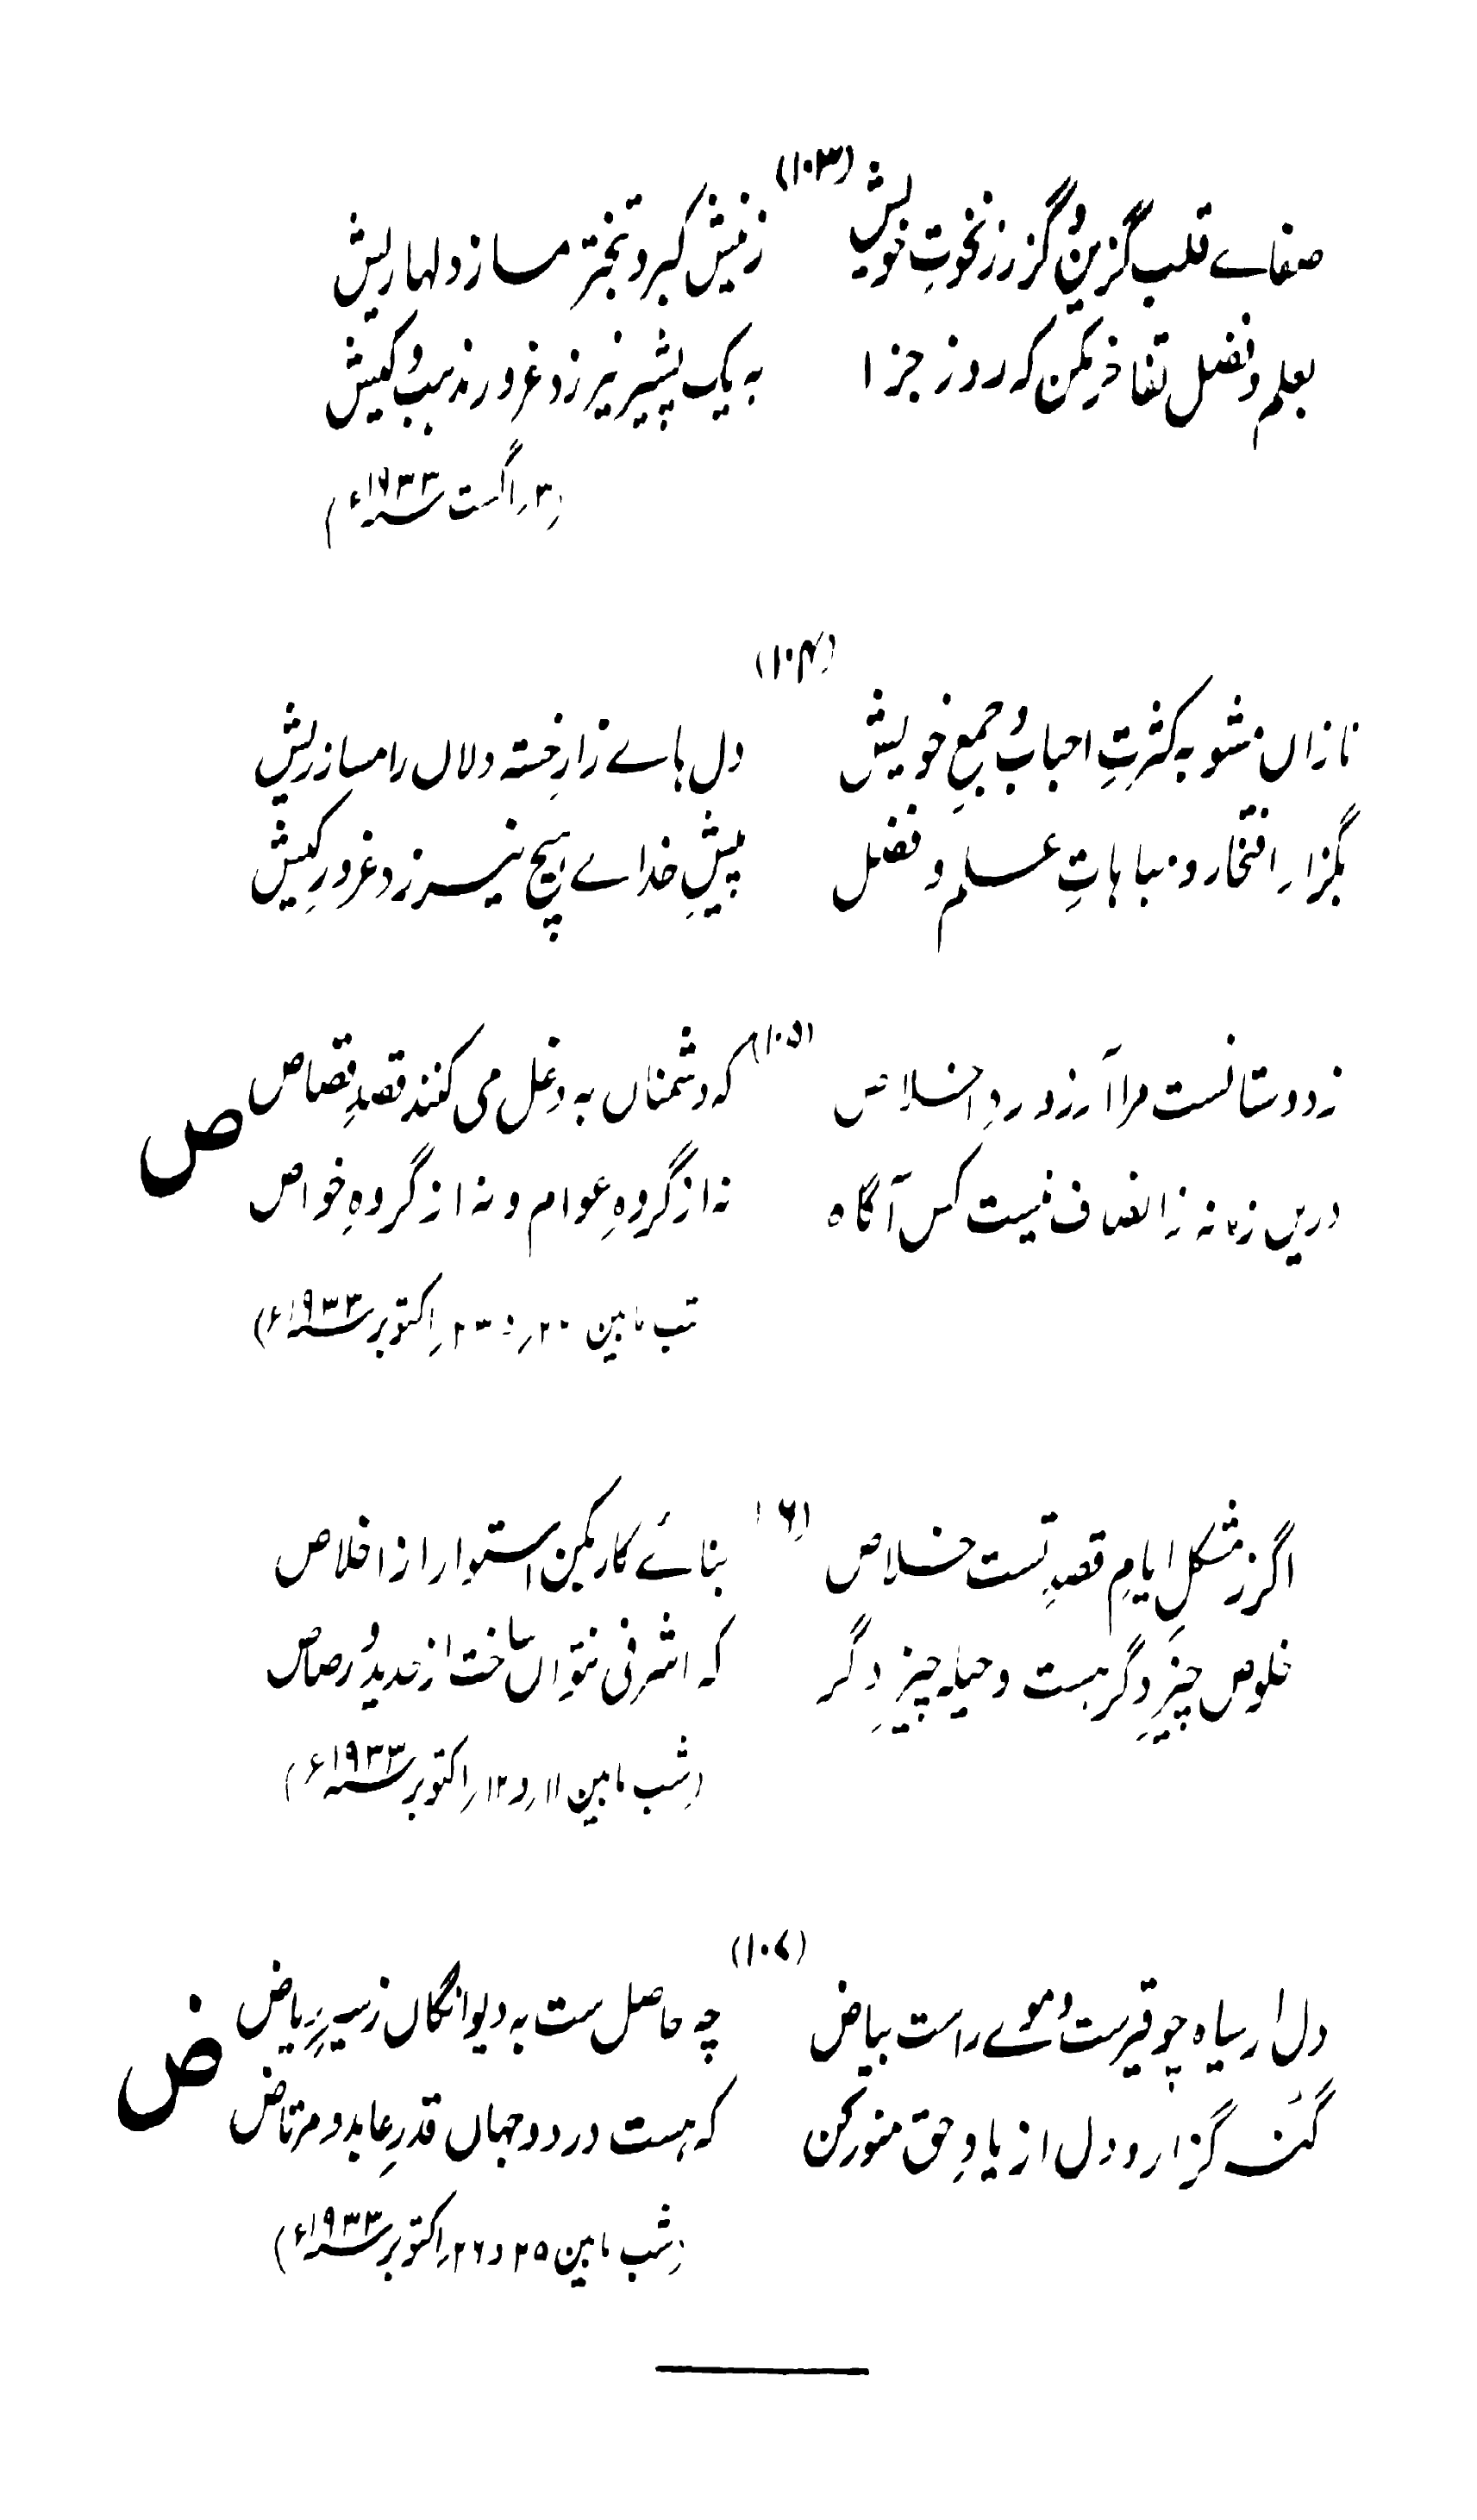 (۱۰۳)
صفاے قلب گزیں گزر ز نخوتِ خویش ز نیشِ کبر و تبختر مساز دلہا ریش
بعلم و فضل تفاخر مکن کہ روز جزا بہ یک پشیز نیرزد غرور مذہب و کیش
(۳ر اگست ۱۹۳۳ء)
(۱۰۴)
نازاں مشو بہ کثرتِ احباب جمعِ خویش دل ہاے زارِ خستہ دلاں را مساز ریش
بگزار افتخار و مباہاتِ علم و فضل پیشِ خداے ہیچ نیرزد غرورِ کیش
(۱۰۵)
ز دوستانست مرا آرزو ردِ اخلاص کہ دشمناں بہ دغل می کنند قصدِ قصاص
ص
دریں زمانہ ز انصاف نیست کس آگاہ نہ از گروہِ عوام و نہ از گروہِ خواص
شب مابین اکتوبر ۱۹۳۳ء)
اگر ز مشکل ایام قصدِ تست خلاص بنائے کار بکن استوار از اخلاص
خلوص چیزِ دگر ہست و حیلہ چیزِ دگر کہ اشرفی نتواں ساخت از حدید و رصاص
(شب مابین ۱۱ر و ۱۲ر اکتوبر ۱۹۳۳ء)
(۱۰۷)
دل ار سیاہ چو قیرست و موے راست بیاض چہ حاصل ست بہ دیوانگاں ز سیرِ ریاض
ض
گنہ گزار و دل از یادِ حق منور کن کہ ہست در دو جہاں قدرِ عابد و مرتاض
(شب مابین ۲۵ و ۲۶ر اکتوبر ۱۹۳۳ء)